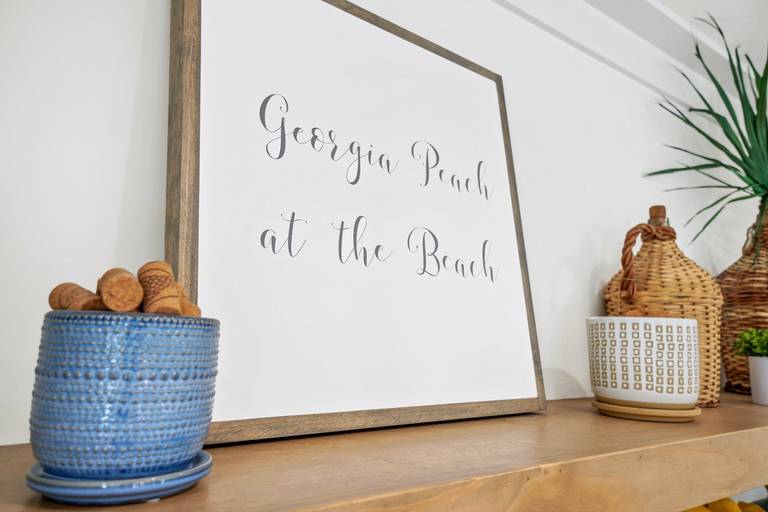 Georgia Peach
at the Beach